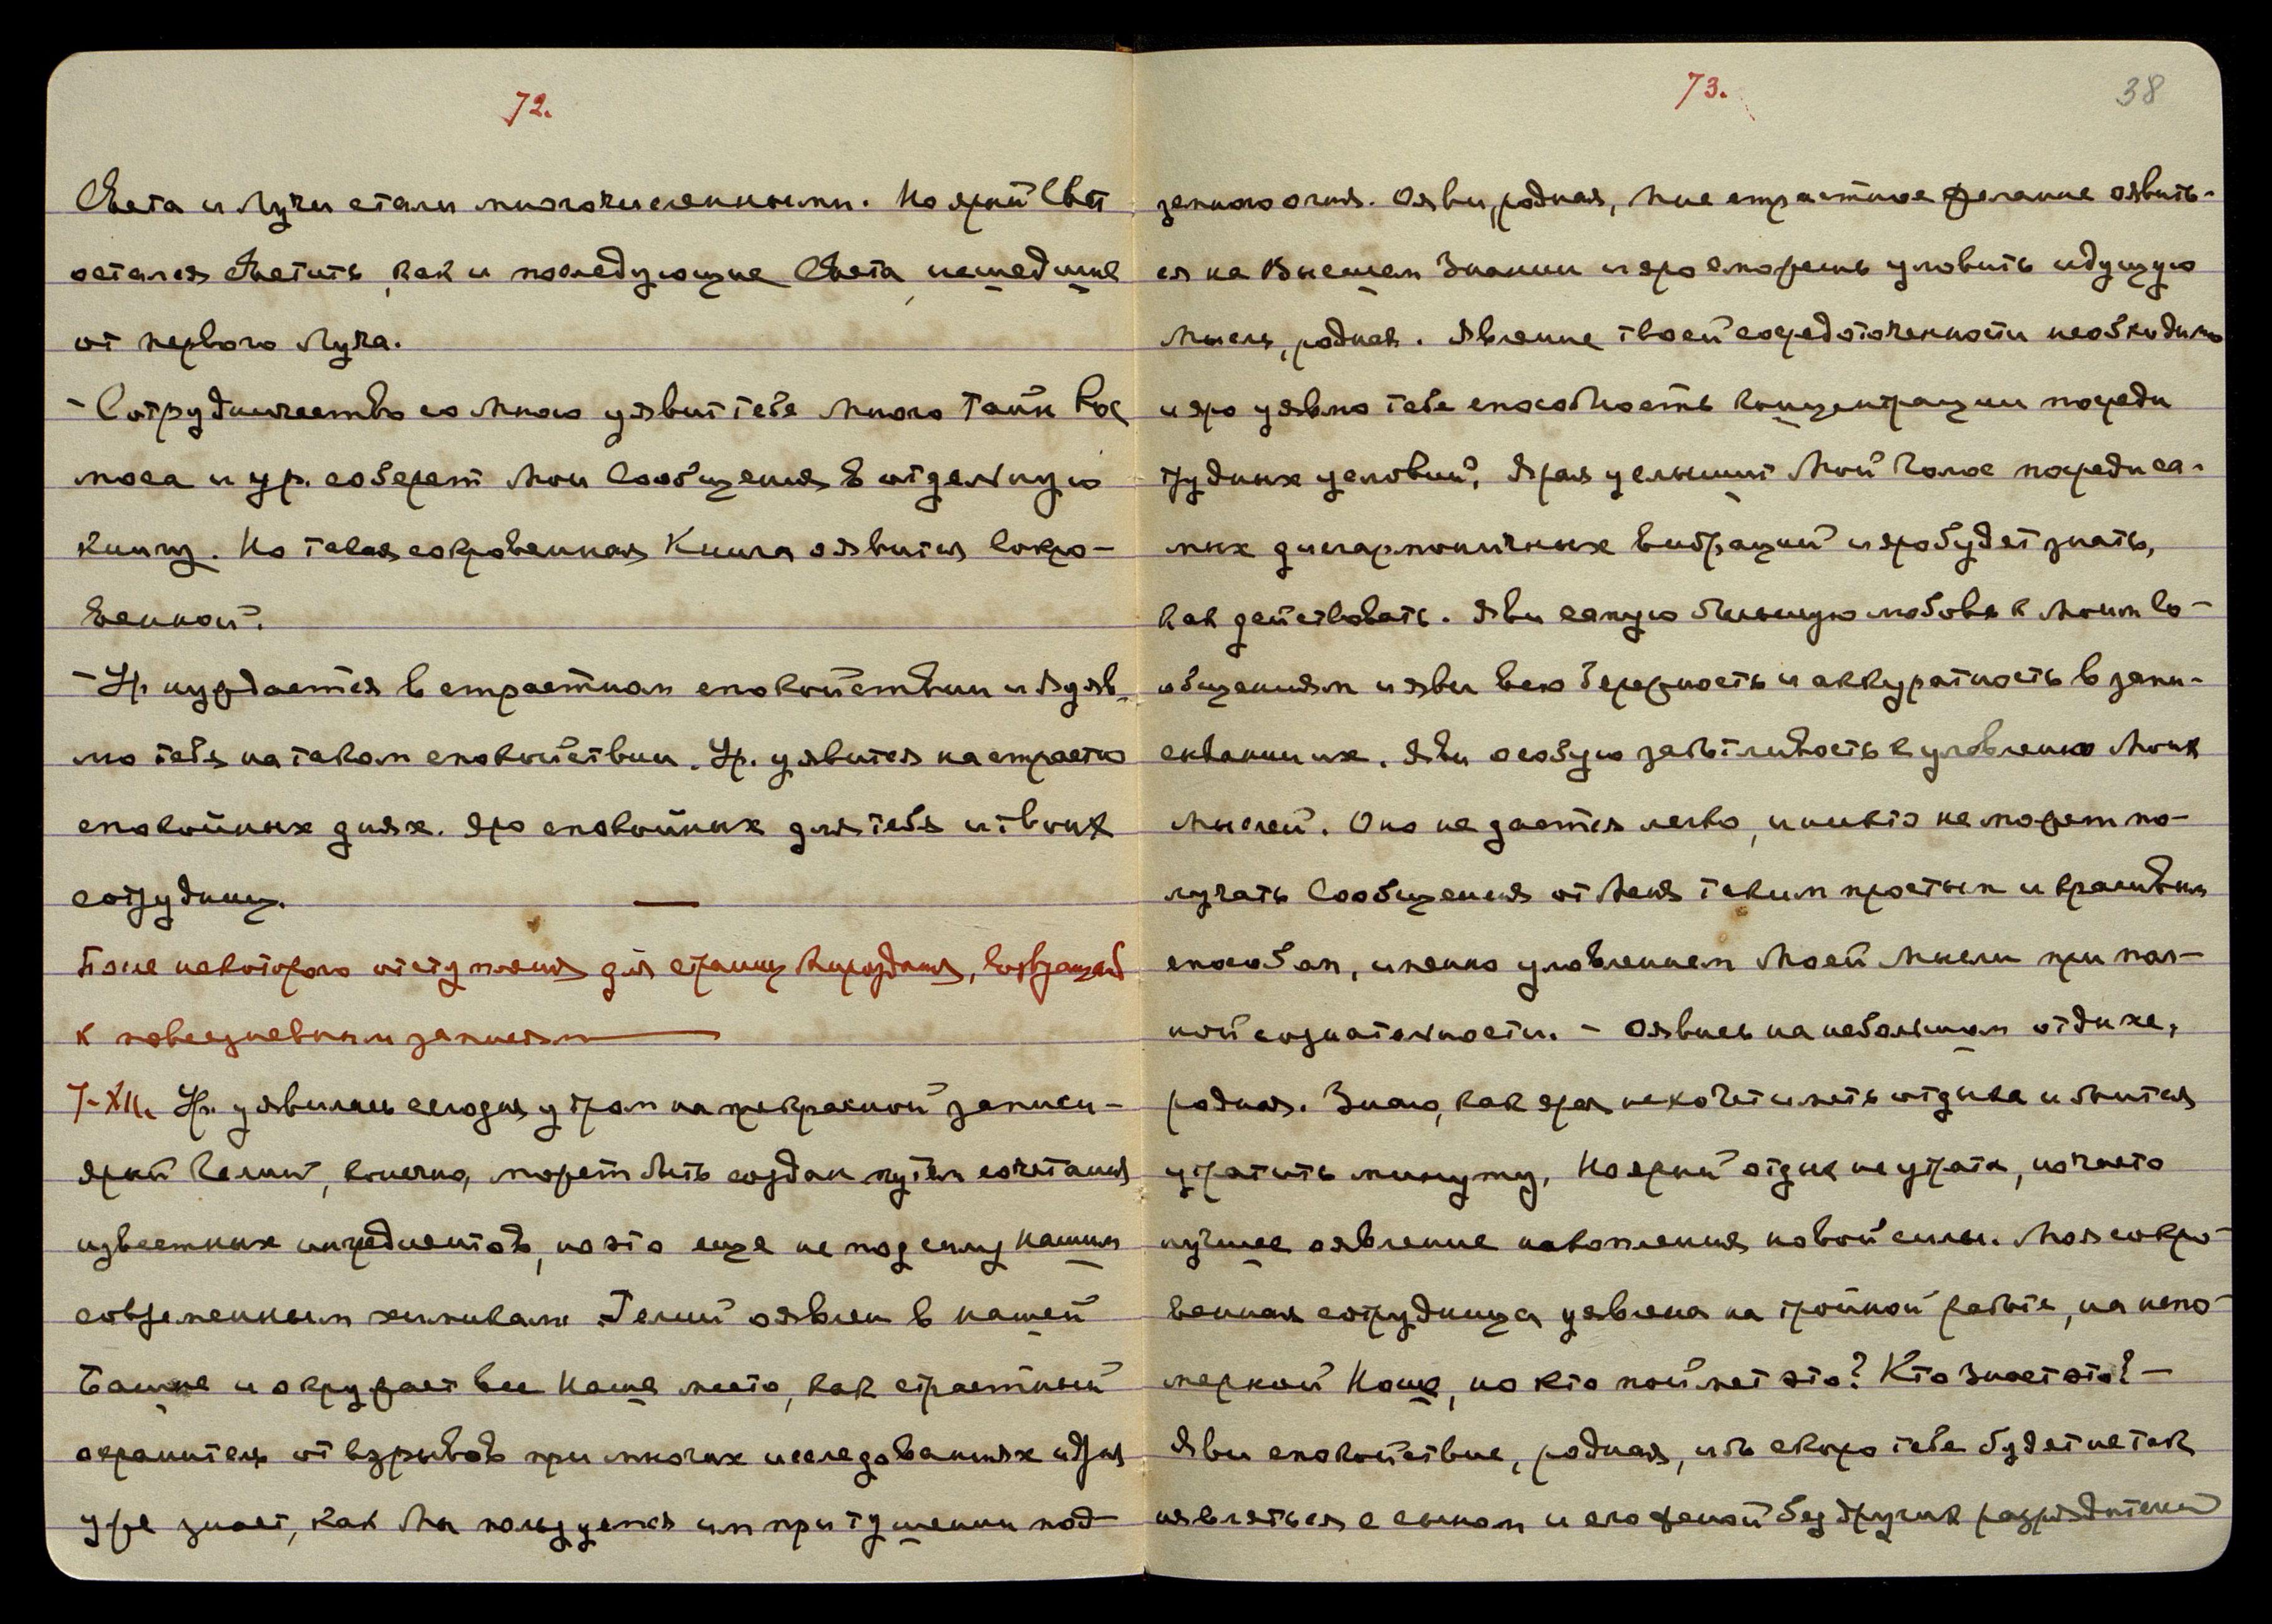 72.
Света и Лучи стали многочисленными. Но ярый Свет
остался Светить, как и последующие Света, исшедшие
от первого Луча.
- Сотрудничество со Мною уявит тебе много Тайн Кос
моса и Ур. соберет Мои Сообщения в отдельную
книгу. Но такая сокровенная Книга оявится сокро-
венной.
- Ур. нуждается в страстном спокойствии и Я уяв-
лю тебя на таком спокойствии. Ур. уявится на страстно
спокойных днях. Яро спокойных для тебя и твоих
сотрудниц.
После некоторого отступления для страниц Мироздания, возвращаюсь
к повседневным записям
7-XII. Ур. уявилась сегодня утром на прекрасной записи-
ярый Гелий, конечно, может быть создан путём сочетания
известных ингредиентов, но это еще не под силу нашим
современным химикам. Гелий оявлен в нашей
Башне и окружает все Наше место, как страстный
охранитель от взрывов при многих исследованиях и Ур.
уже знает, как Мы пользуемся им при тушении под-
73.
38
земного огня. Ояви, родная, Мне страстное желание оявить-
ся на Высшем Знании и яро сможешь уловить идущую
Мысль, родная. Явление твоей сосредоточенности необходимо
и яро уявлю тебе способность концентрации посреди
трудных условий, Ярая услышит Мой Голос посреди са-
мых дисгармоничных вибраций и яро будет знать,
как действовать. Яви самую большую любовь к Моим Со-
общениям и яви всю бережность и аккуратность в запи-
сывании их. Яви особую заботливость к уловлению Моих
Мыслей. Оно не дается легко, и никто не может по-
лучать Сообщения от Меня таким простым и красивым
способом, именно уловлением Моей Мысли при пол-
ной сознательности. - Оявись на небольшом отдыхе,
родная. Знаю, как ярая не хочет иметь отдыха и боится
утратить минуту, Но ярый отдых не утрата, но часто
лучшее оявление накопления новой силы. Моя сокро-
венная сотрудница уявлена на тройной работе, на непо-
меркой Ноше, но кто поймет это? Кто знает это? -
Яви спокойствие, родная, ибо скоро тебе будет не так
являться с сыном и его женой без других раздражителей